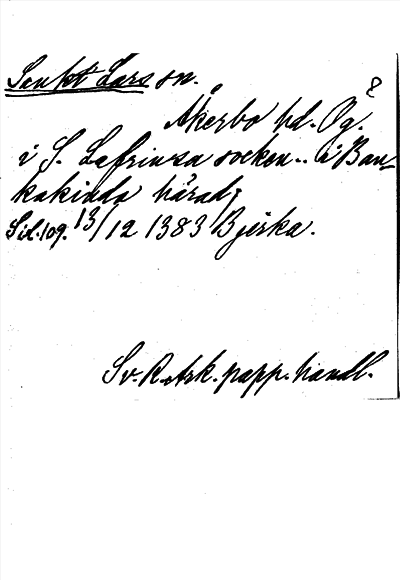 Sankt Lars sn.
8
Åkerbo hd. Ög.
i S. Lafrinza socken.. i Ban-
kakinda härad,
Sid. 109. 13/12 1383 Bjärka.
Sv. R. Ark. papp. handl.